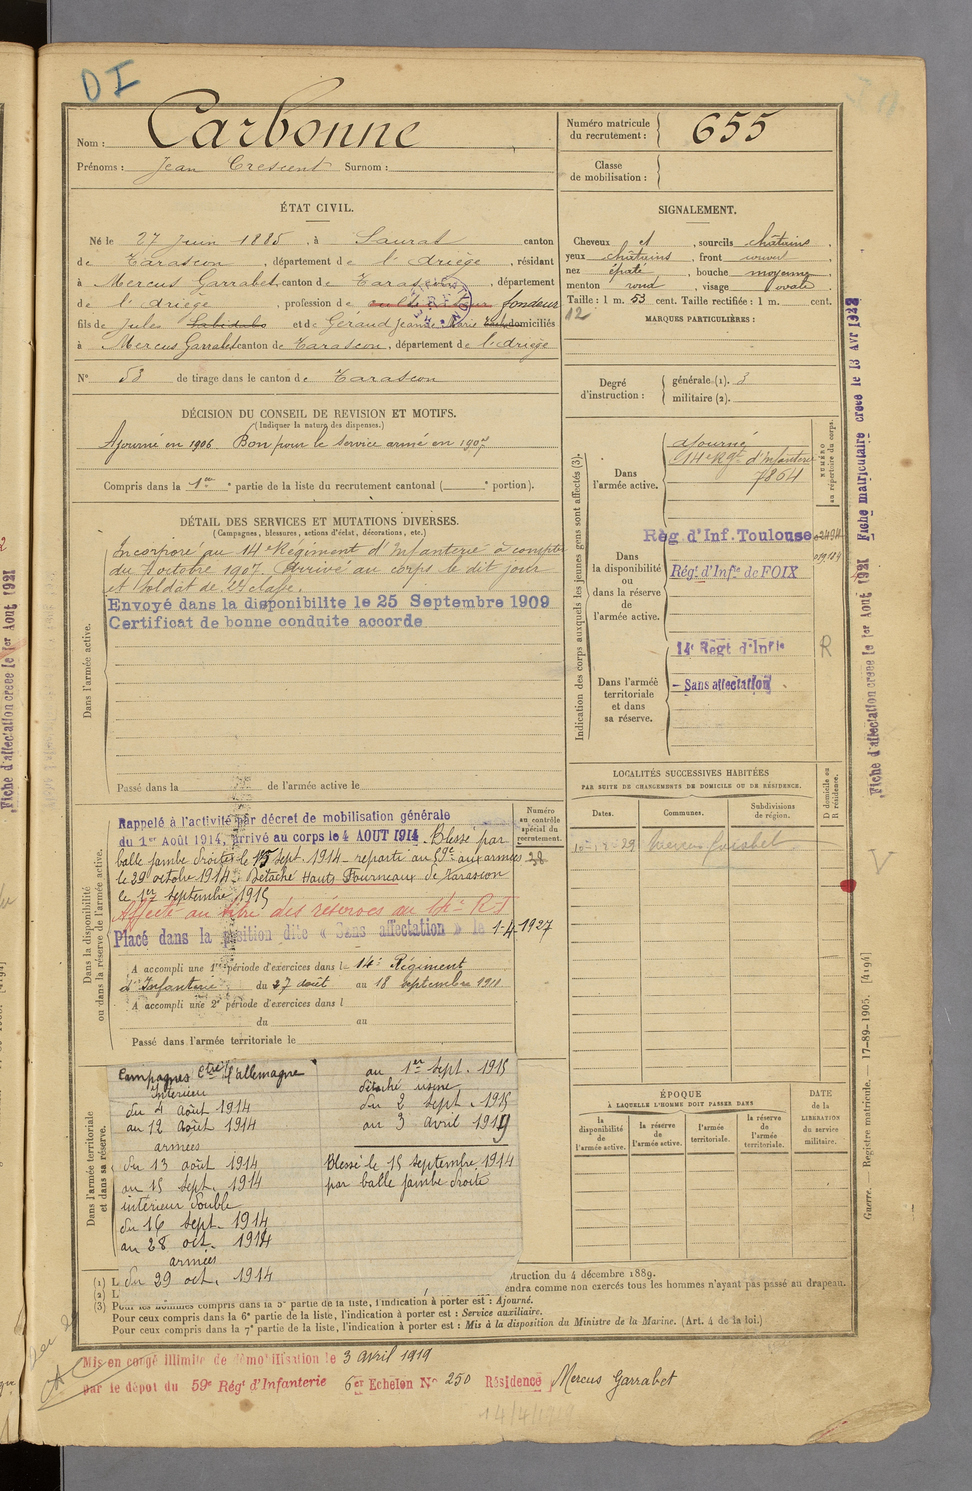 DI
Nom : Carbonne
Prénoms : Jean Crescent Surnom :
ÉTAT CIVIL.
Né le 27 Juin 1885, à Saurat canton
de Tarascon, département de l'Ariège, résidant
à Mercus Garrabet, canton de Tarascon, département
de l'Ariège, profession de cultivateur fondeur
fils de Jules et de Géraud Jeanne Marie domiciliés
à Mercus Garrabet canton de Tarascon, département de l'Ariège
N° 53 de tirage dans le canton de Tarascon
DÉCISION DU CONSEIL DE REVISION ET MOTIFS.
(Indiquer la nature des dispenses.)
Ajourné en 1906 Bon pour le service armé en 1907
Compris dans la 1re partie de la liste du recrutement cantonal ( ° portion).
DÉTAIL DES SERVICES ET MUTATIONS DIVERSES.
(Campagnes, blessures, actions d'éclat, décorations, etc.)
Dans l'armée active.
Incorporé au 14e Régiment d'Infanterie à compter
du 7 octobre 1907. Arrivé au corps le dit jour
et soldat de 2e classe.
Envoyé dans la disponibilite le 25 Septembre 1909
Certificat de bonne conduite accorde
Passé dans la de l'armée active le
Dans la disponibilité
ou dans la réserve de l'armée active.
Numéro
au contrôle
spécial du
recrutement.
Rappelé à l'activité par décret de mobilisation générale
du 1er Août 1914, arrivé au corps le 4 AOUT 1914. Blessé par
balle jambe droite le 15 sept. 1914 - reparti au 59e aux armées
le 29 octobre 1914. Détaché Hauts Fourneaux de Tarascon
le 1er septembre 1915
Affecté au titre des réserves au 14e R.I
Placé dans la position dite « Sans affectation » le 1-4-1927
A accompli une 1re période d'exercices dans le 14e Régiment
d'Infanterie du 27 août au 18 septembre 1911
A accompli une 2e période d'exercices dans l
du au
Passé dans l'armée territoriale le
Dans l'armée territoriale
et dans sa réserve.
Campagnes Ctre l'allemagne
intérieur
du 4 Août 1914
au 12 Août 1914
armées
du 13 août 1914
au 15 sept. 1914
intérieur double
du 16 sept. 1914
au 28 oct. 1914
armées
du 29 oct. 1914
au 1er sept. 1915
détaché usine
du 2 sept. 1915
au 3 avril 1919
Blessé le 15 septembre 1914
par balle jambe droite
(1) L
(2) L
struction du 4 décembre 1889.
endra comme non exercés tous les hommes n'ayant pas passé au drapeau.
(3) Pour les hommes compris dans la 5e partie de la liste, l'indication à porter est : Ajourné.
Pour ceux compris dans la 6e partie de la liste, l'indication à porter est : Service auxiliaire.
Pour ceux compris dans la 7e partie de la liste, l'indication à porter est : Mis à la disposition du Ministre de la Marine. (Art. 4 de la loi.)
Mis en congé illimité de démobilisation le 3 avril 1919
par le dépôt du 59e Régt d'Infanterie 6er Echelon N° 250 Résidence Mercus Garrabet
14/4/1919
Numéro matricule
du recrutement : 655
Classe
de mobilisation :
SIGNALEMENT.
Cheveux et, sourcils châtains,
yeux châtains, front couvert,
nez épaté, bouche moyenne,
menton rond, visage ovale.
Taille : 1 m. 53 cent. Taille rectifiée : 1 m. cent.
12
MARQUES PARTICULIÈRES :
Degré
d'instruction :
générale (1). 3
militaire (2).
Indication des corps auxquels les jeunes gens sont affectés (3).
NUMÉRO
au répertoire du corps.
Dans
l'armée active.
ajourné
14e Rgt d'Infanterie
7864
Dans
la disponibilité
ou
dans la réserve
de
l'armée active.
Règ. d'Inf. Toulouse
Régt d'Infie de FOIX
Dans l'armée
territoriale
et dans
sa réserve.
14e Regt d'Infie
R
— Sans affectation
LOCALITÉS SUCCESSIVES HABITÉES
PAR SUITE DE CHANGEMENTS DE DOMICILE OU DE RÉSIDENCE.
Dates.
Communes.
Subdivisions
de région.
D domicile ou
R résidence.
ÉPOQUE
À LAQUELLE L'HOMME DOIT PASSER DANS
la
disponibilité
de
l'armée active.
la réserve
de
l'armée active.
l'armée
territoriale.
la réserve
de
l'armée
territoriale.
DATE
de la
LIBÉRATION
du service
militaire.
Fiche matriculaire créée le 13 Avr 1928
Fiche d'affectation créée le 1er Aout 1921
Guerre. — Registre matricule. — 17-89-1905. [4194]
Fiche d'affectation créée le 1er Aout 1921